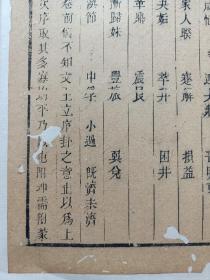 家人睽 蹇解 損益
夬姤 萃升 困井
革鼎 震艮
漸歸妹 豐旅 巽兌
渙節 中孚 小過 既濟未濟
卷前儒不知文王立序卦之意止以為上
次序取其多寡均平乃也附坤需附蒙